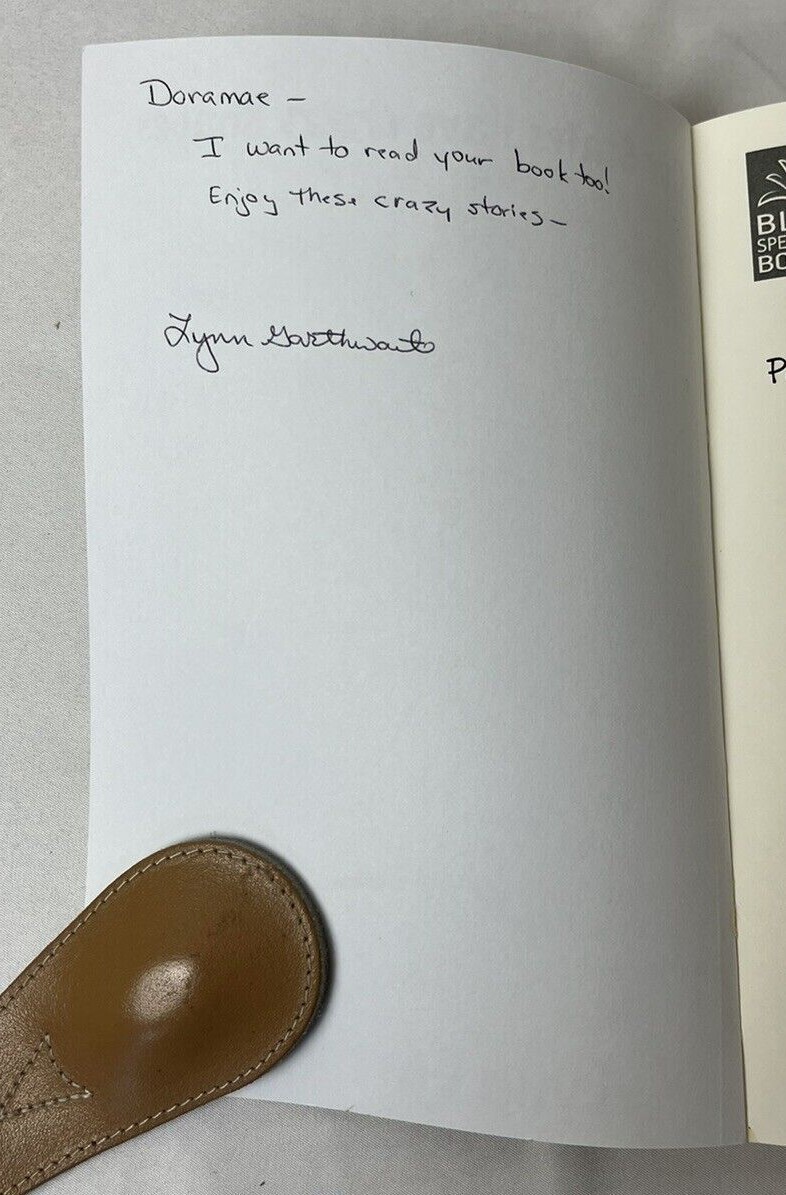 Doramae –
I want to read your book too!
Enjoy these crazy stories –
Lynn Garthwaite
BL
SPE
BO
P